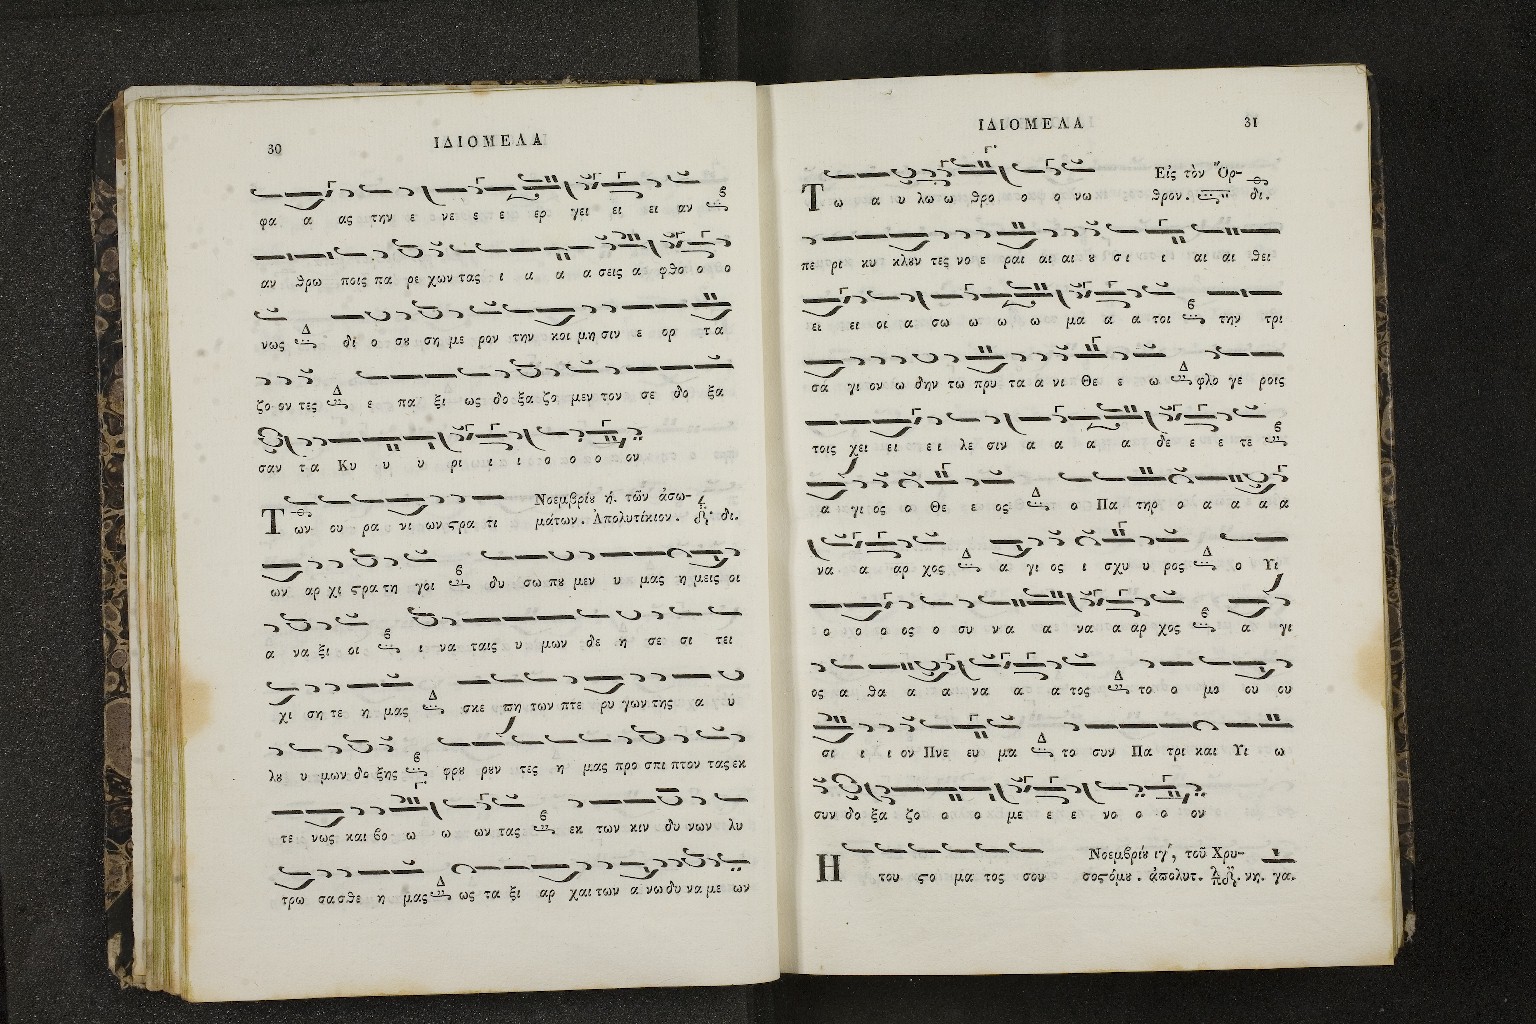 30
ΙΔΙΟΜΕΛΑ
φα α ας την ε νε ε ε ερ γει ει ει αν
αν θρω ποις πα ρε χων τας ι α α α σεις α φθο ο ο
νως Δ δι ο σου ση με ρον την κοι μη σιν ε ορ τα
ζο ον τες Δ ε πα ξι ως δο ξα ζο μεν τον σε δο ξα
σαν τα Κυ υ υ ρι ι ι ο ο ο ον
Νοεμβρίου ή. τῶν ἀσω-
Των ου ρα νι ων στρα τι μάτων. Ἀπολυτίκιον. δι.
ων αρ χι στρα τη γοι δυ σω που μεν υ μας η μεις οι
α να ξι οι ι να ταις υ μων δε η σε σι τει
χι ση τε η μας Δ σκε πη των πτε ρυ γων της α υ
λου υ μων δο ξης φρου ρουν τες η μας προ σπι πτον τας εκ
τε νως και βο ω ω ων τας εκ των κιν δυ νων λυ
τρω σα σθε η μας Δ ως τα ξι αρ χαι των α νω δυ να με ων
ΙΔΙΟΜΕΛΑ
31
Εἰς τὸν Ὄρ-
Τω α υ λω ω θρο ο ο νω θρον. δι.
πε ρι κυ κλουν τες νο ε ραι αι αι ου σι ι αι αι θει
ει ει οι α σω ω ω ω μα α α τοι την τρι
σα γι ον ω δην τω πρυ τα α νι Θε ε ω Δ φλο γε ροις
τοις χει ει ει λε σιν α α α α δε ε ε τε
α γι ος ο Θε ε ος Δ ο Πα τηρ ο α α α α
να α αρ χος Δ α γι ος ι σχυ υ ρος Δ ο Υι
ο ο ο ος ο συ να α να α αρ χος α γι
ος α θα α α να α α τος Δ το ο μο ου ου
σι ι ι ον Πνε ευ μα Δ το συν Πα τρι και Υι ω
συν δο ξα ζο ο ο με ε ε νο ο ο ον
Νοεμβρίου ιγ', τοῦ Χρυ-
Η του στο μα τος σου σοστόμου. ἀπολυτ. νη. γα.